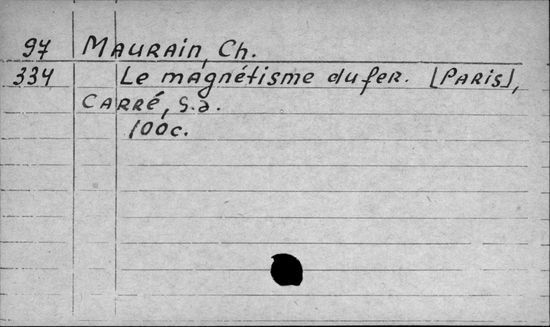 97 MAURAIN, Ch.
334 Le magnétisme du fer. [PARIS],
CARRÉ, s.a.
100c.